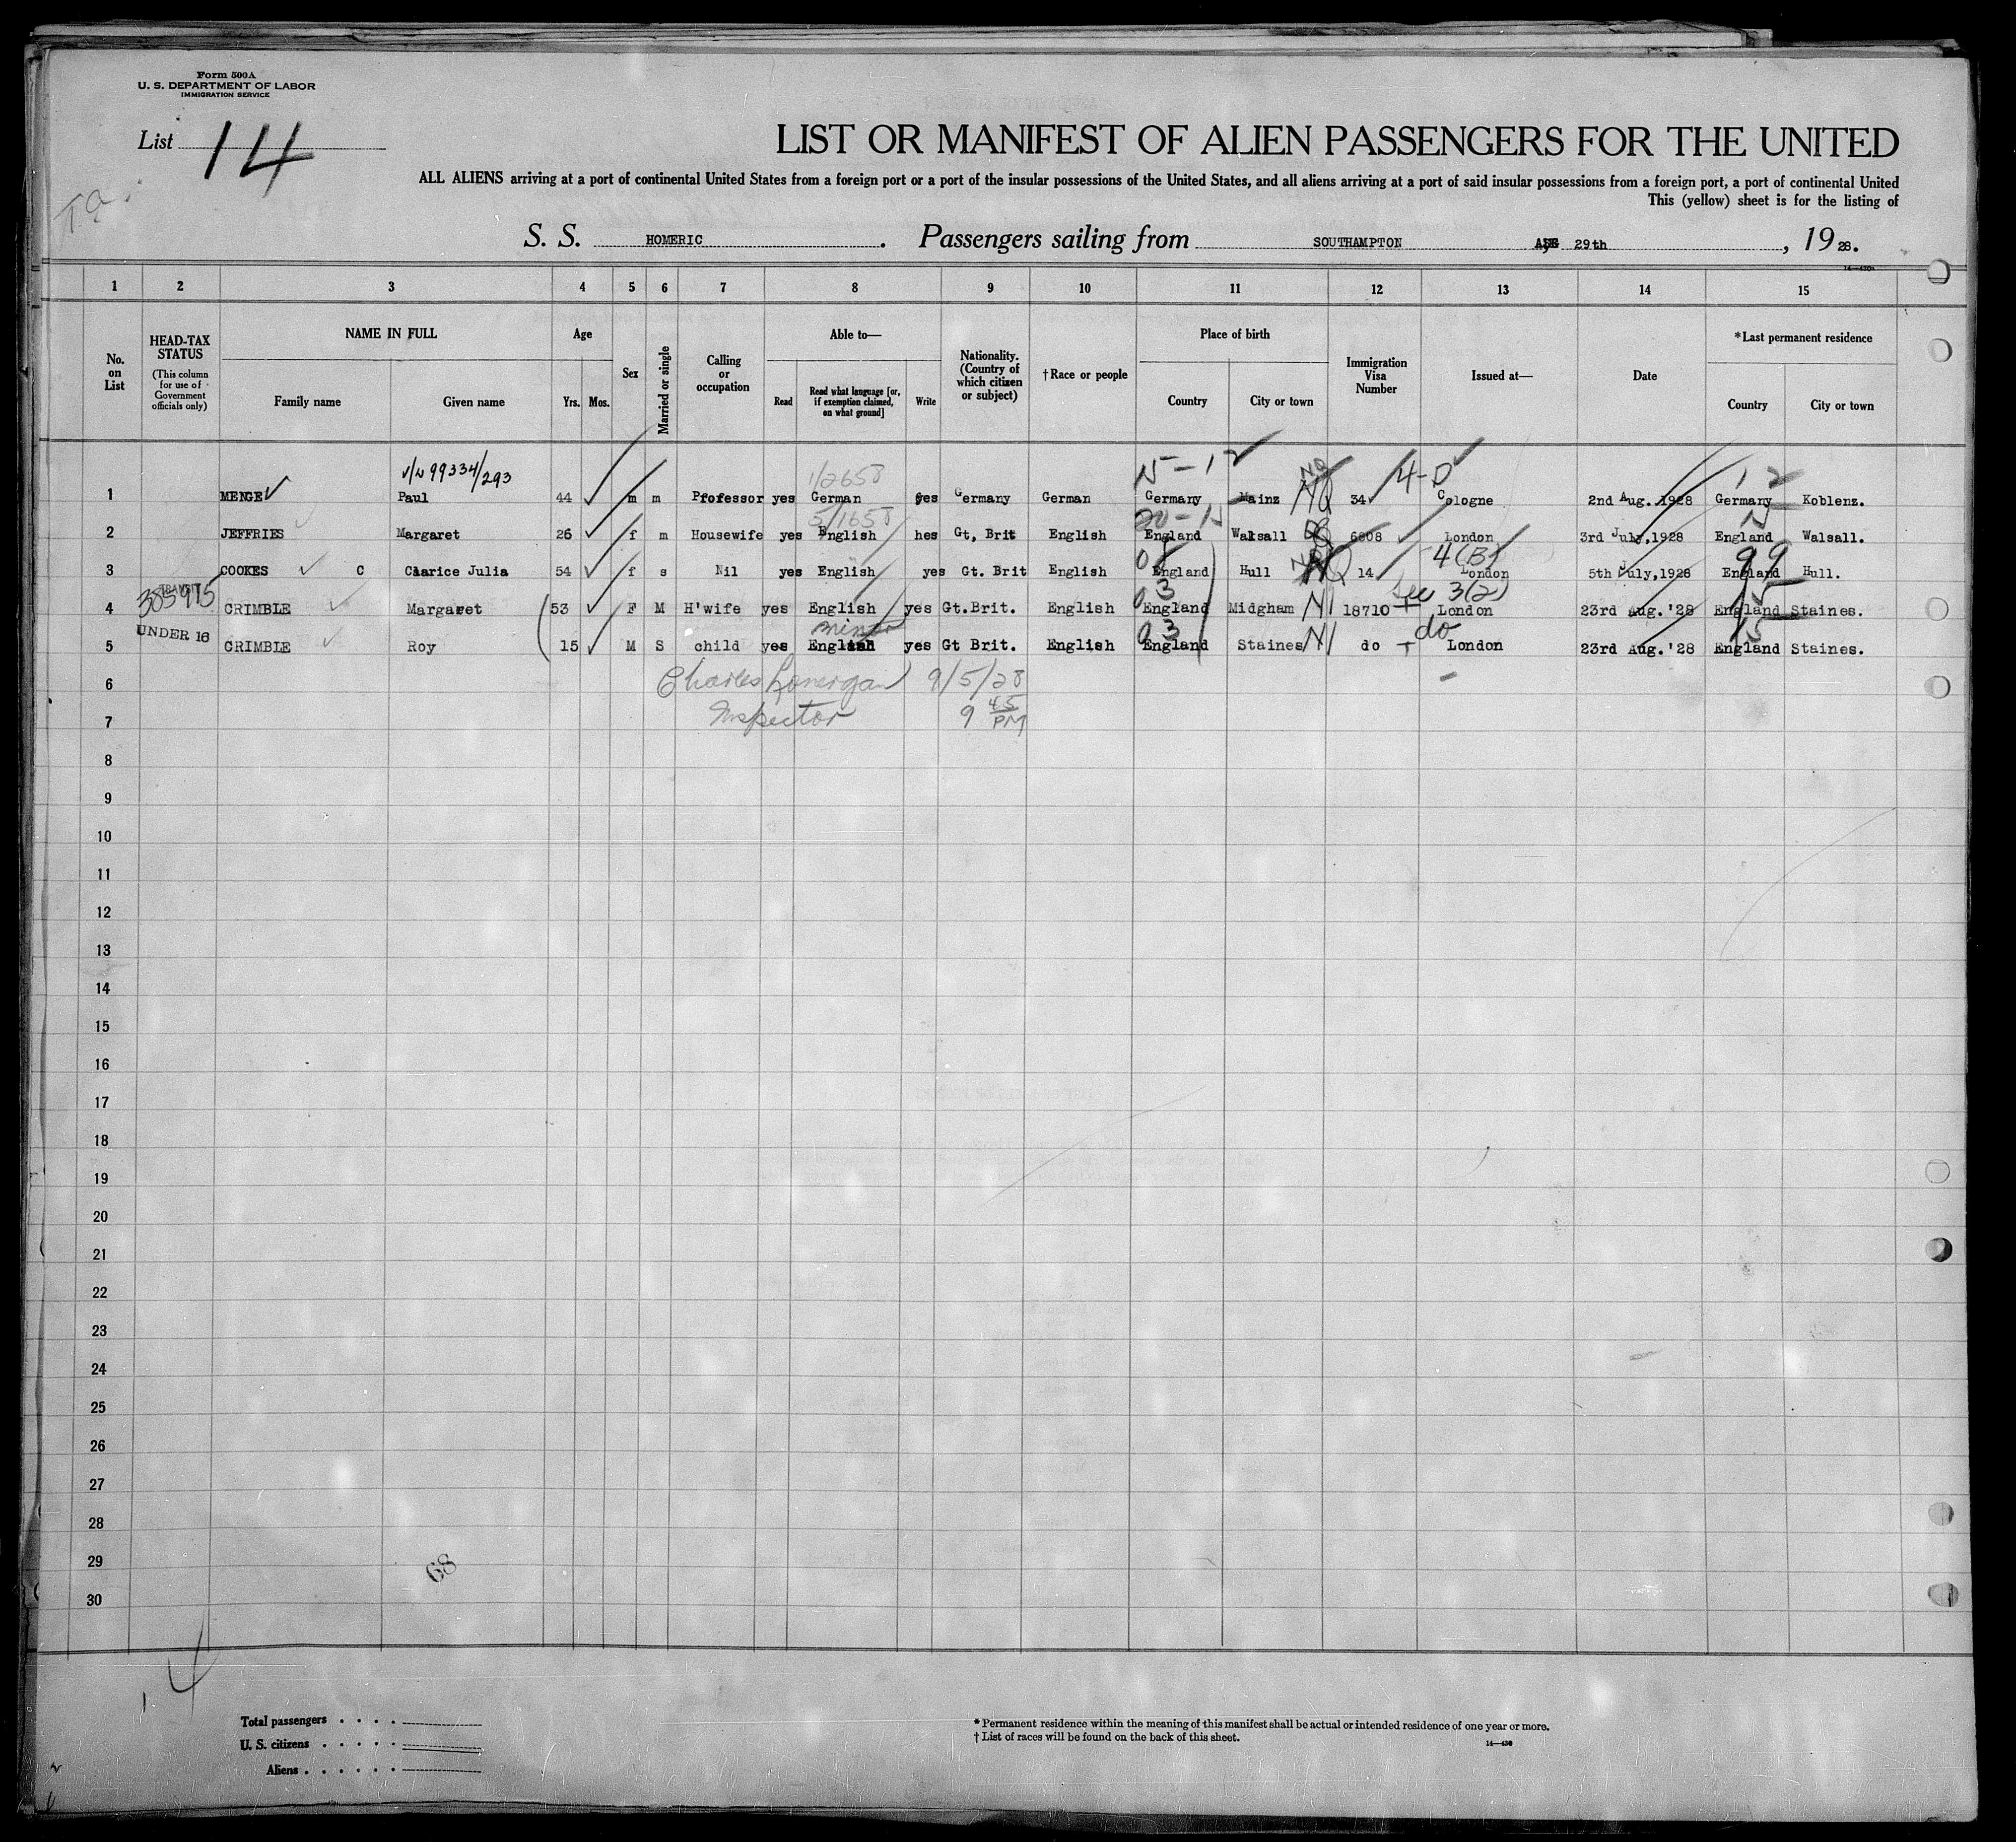 Form 500A
U. S. DEPARTMENT OF LABOR
IMMIGRATION SERVICE
List 14
LIST OR MANIFEST OF ALIEN PASSENGERS FOR THE UNITED
ALL ALIENS arriving at a port of continental United States from a foreign port or a port of the insular possessions of the United States, and all aliens arriving at a port of said insular possessions from a foreign port, a port of continental United
This (yellow) sheet is for the listing of
S. S. HOMERIC. Passengers sailing from SOUTHAMPTON 29th, 19 28.
1 2 3 4 5 6 7 8 9 10 11 12 13 14 15
No. on List
HEAD-TAX STATUS (This column for use of Government officials only)
NAME IN FULL
Family name Given name
Age
Yrs. Mos.
Sex
Married or single
Calling or occupation
Able to—
Read Read what language [or, if exemption claimed, on what ground] Write
Nationality. (Country of which citizen or subject)
†Race or people
Place of birth
Country City or town
Immigration Visa Number
Issued at—
Date
*Last permanent residence
Country City or town
99334/293 1/2658 4-D 12
1 MENGE Paul 44 m m Professor yes German yes Germany German Germany Mainz NQ 34 Cologne 2nd Aug. 1928 Germany Koblenz.
5/1658 20-15
2 JEFFRIES Margaret 26 f m Housewife yes English hes Gt, Brit English England Walsall 6808 London 3rd July,1928 England Walsall.
4(B) 99
3 COOKES C Clarice Julia 54 f s Nil yes English yes Gt. Brit English England Hull 14 London 5th July,1928 England Hull.
385915 03 See 3(2)
4 CRIMBLE Margaret 53 F M H'wife yes English yes Gt.Brit. English England Midgham 18710 London 23rd Aug.'28 England Staines.
UNDER 16 minor 03 do
5 CRIMBLE Roy 15 M S child yes English yes Gt Brit. English England Staines do London 23rd Aug.'28 England Staines.
6 Charles Lonergan 9/5/28
7 Inspector 9 45 PM
8
9
10
11
12
13
14
15
16
17
18
19
20
21
22
23
24
25
26
27
28
29
30
68
Total passengers
U. S. citizens
Aliens
* Permanent residence within the meaning of this manifest shall be actual or intended residence of one year or more.
† List of races will be found on the back of this sheet.
14—430